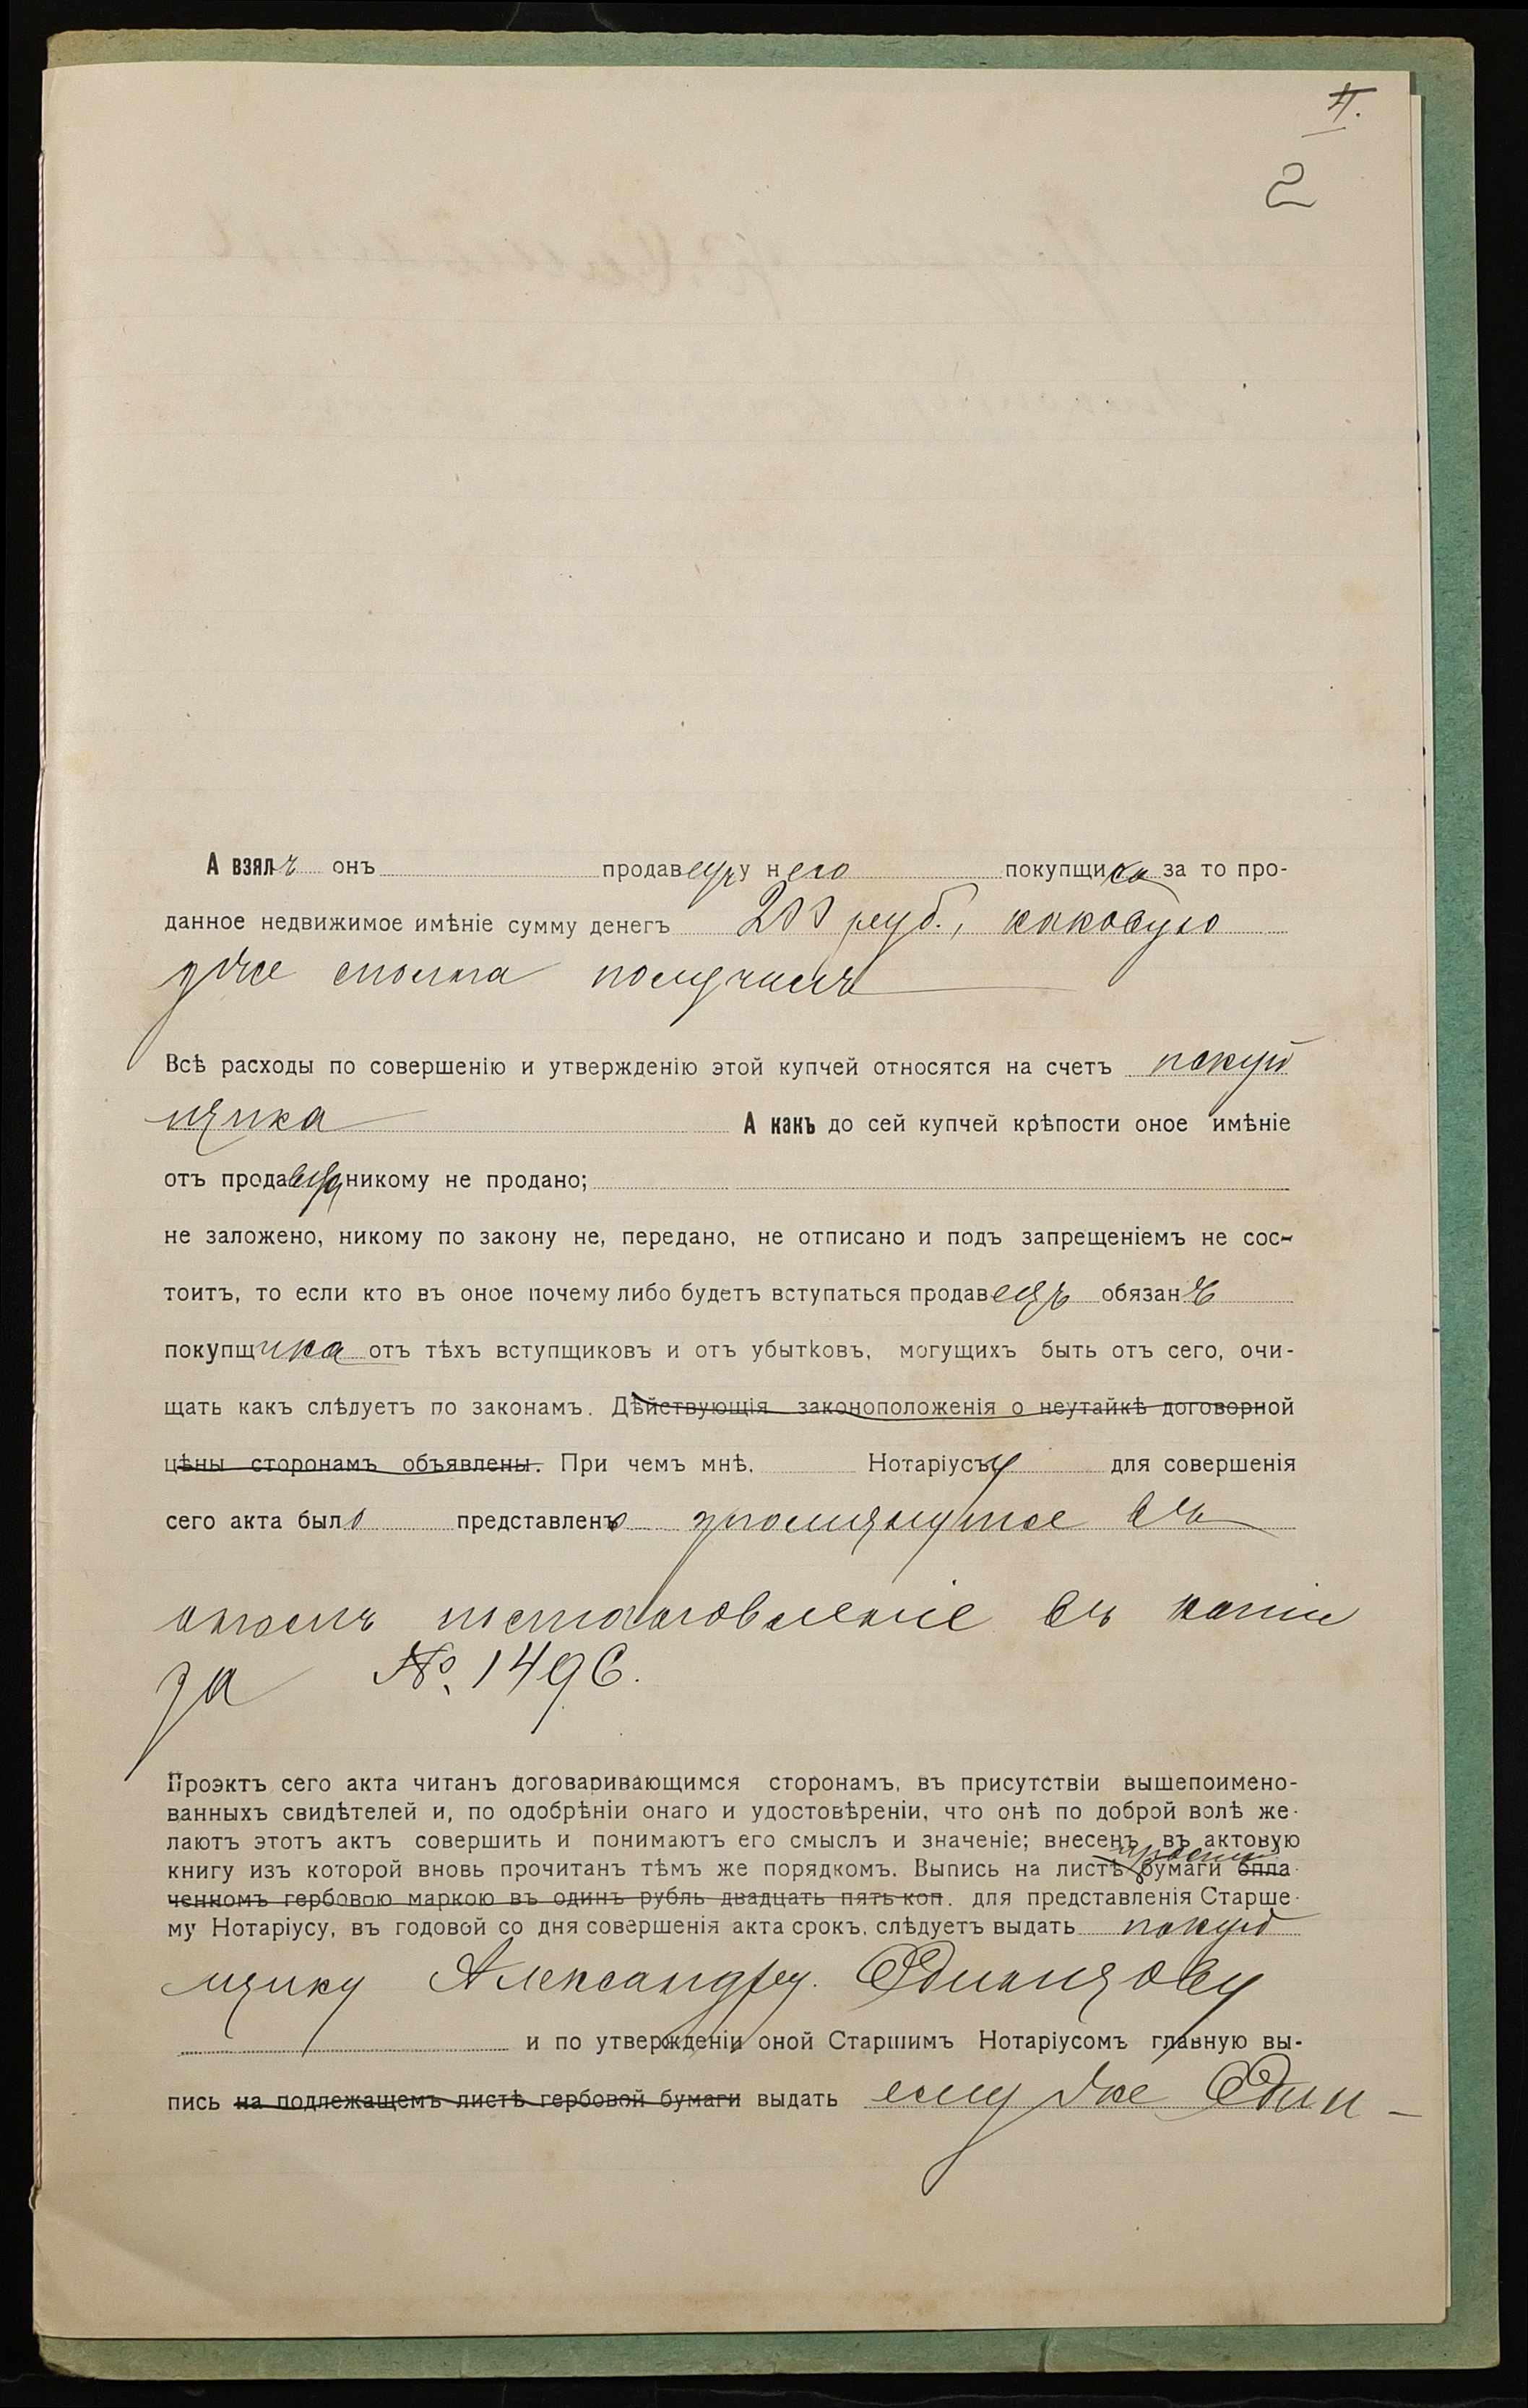 2
А взялъ онъ продавецъ у него покупщика за то про-
данное недвижимое имѣніе сумму денегъ 200 руб., каковую
уже сполна получилъ
Всѣ расходы по совершенію и утвержденію этой купчей относятся на счетъ покуп
щика А какъ до сей купчей крѣпости оное имѣніе
отъ продавца никому не продано;
не заложено, никому по закону не, передано, не отписано и подъ запрещеніемъ не сос-
тоитъ, то если кто въ оное почему либо будетъ вступаться продавецъ обязанъ
покупщика отъ тѣхъ вступщиковъ и отъ убытковъ, могущихъ быть отъ сего, очи-
щать какъ слѣдуетъ по законамъ. Дѣйствующія законоположенія о неутайкѣ договорной
цѣны сторонамъ объявлены. При чемъ мнѣ, Нотаріусу для совершенія
сего акта было представлено упомянутое въ
ономъ постановленіе въ копіи
за № 1496.
Проэктъ сего акта читанъ договаривающимся сторонамъ, въ присутствіи вышепоимено-
ванныхъ свидѣтелей и, по одобрѣніи онаго и удостовѣреніи, что онѣ по доброй волѣ же-
лаютъ этотъ актъ совершить и понимаютъ его смыслъ и значеніе; внесенъ въ актовую
книгу изъ которой вновь прочитанъ тѣмъ же порядкомъ. Выпись на листѣ простой бумаги опла-
ченномъ гербовою маркою въ одинъ рубль двадцать пять коп. для представленія Старше-
му Нотаріусу, въ годовой со дня совершенія акта срокъ, слѣдуетъ выдать покуп
щику Александру Одинцову
и по утвержденіи оной Старшимъ Нотаріусомъ главную вы-
пись на подлежащемъ листѣ гербовой бумаги выдать ему же Один-